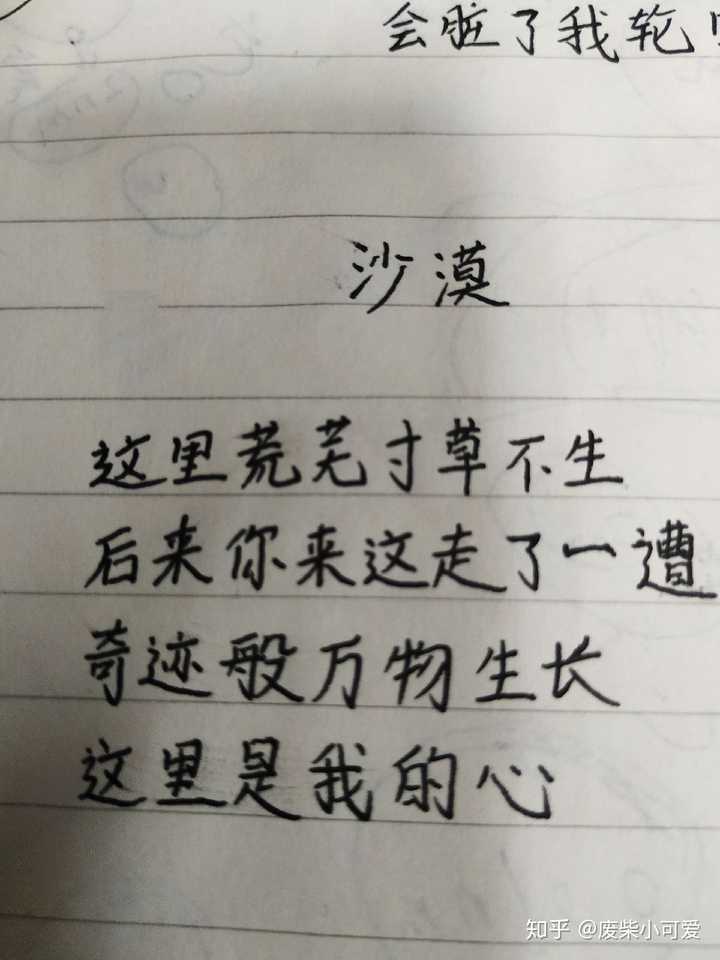 会脏了我轮
沙漠
这里荒芜寸草不生
后来你来这走了一遭
奇迹般万物生长
这里是我的心
知乎 @废柴小可爱